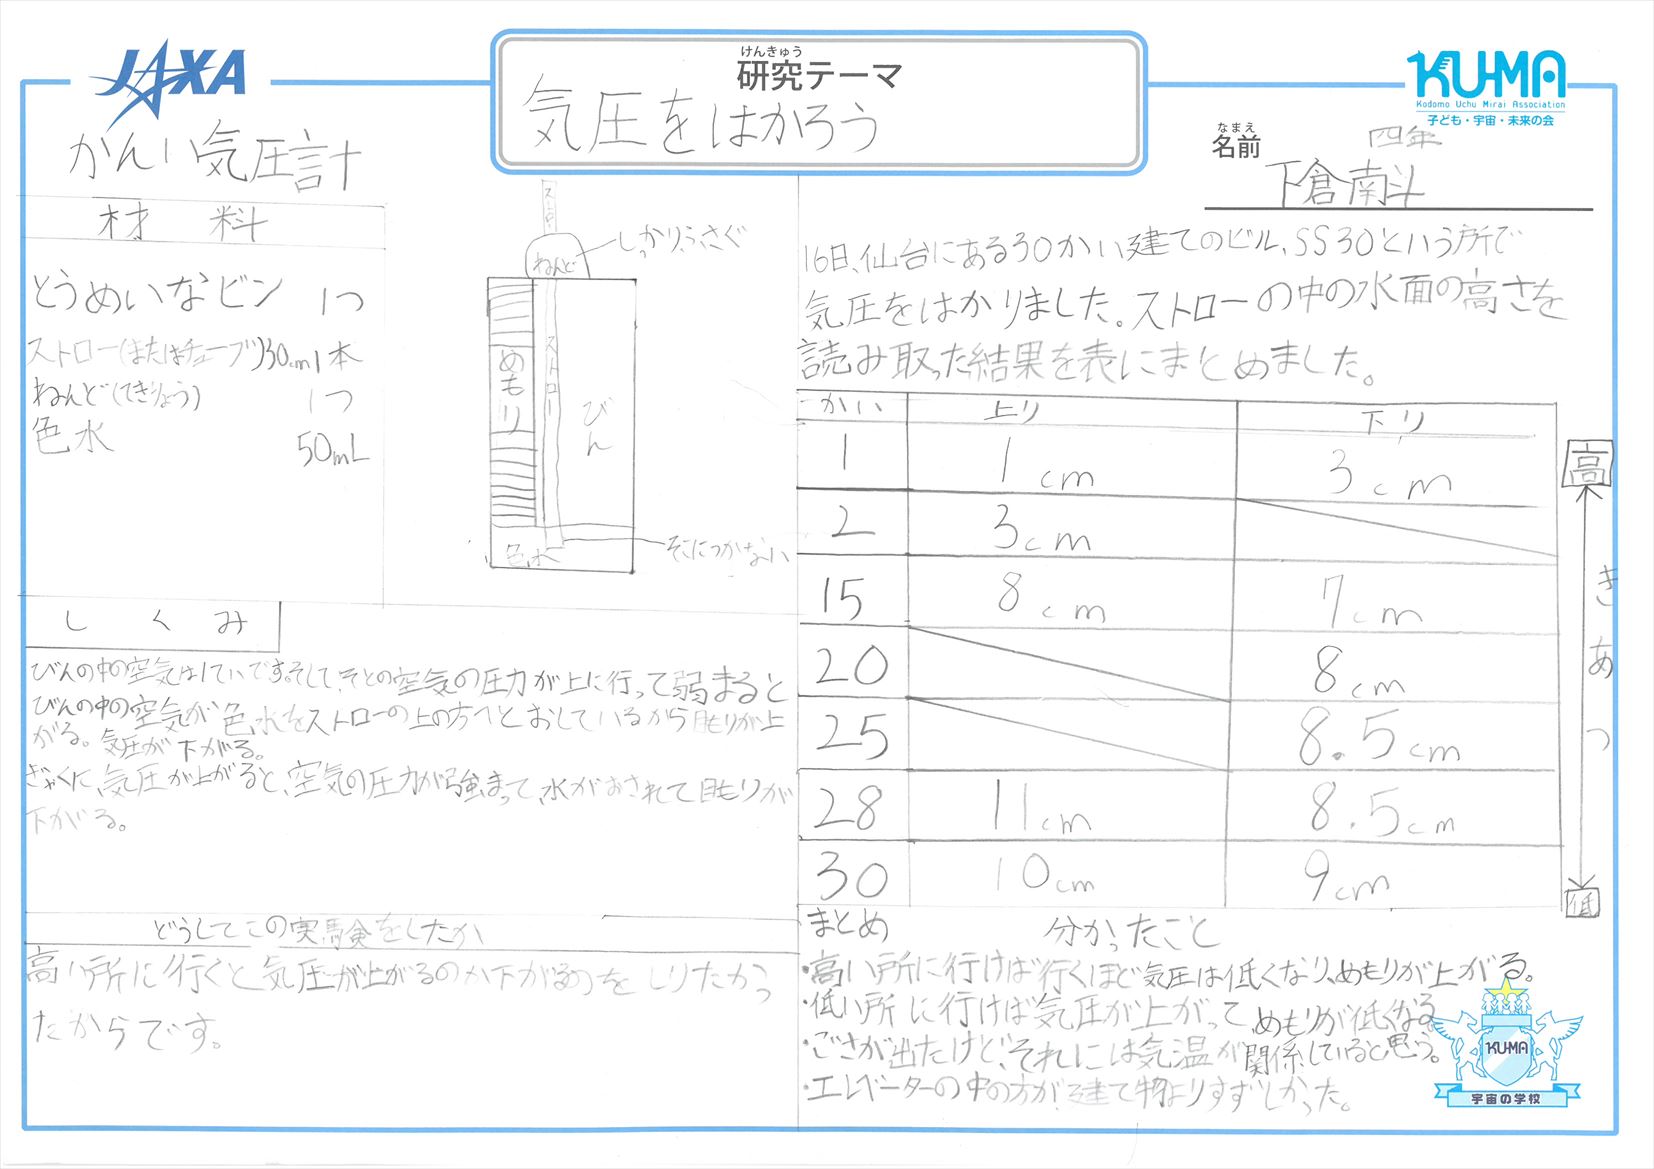 JAXA
けんきゅう
研究テーマ
気圧をはかろう
KU-MA
Kodomo Uchu Mirai Association
子ども・宇宙・未来の会
なまえ
名前
四年
下倉南斗
かんい気圧計
材 料
とうめいなビン 1つ
ストロー(またはチューブ)30cm1本
ねんど(てきりょう) 1つ
色水 50mL
ストロー
ねんど
しっかりふさぐ
めもり
ストロー
びん
色水
そこにつかない
しくみ
びんの中の空気は1ていです。そして、そとの空気の圧力が上に行って弱まると
びんの中の空気が色水をストローの上の方へとおしているから目もりが上
がる。気圧が下がる。
ぎゃくに、気圧が上がると、空気の圧力が強まって、水がおされて目もりが
下がる。
どうしてこの実験をしたか
高い所に行くと気圧が上がるのか下がるのをしりたかっ
たからです。
16日、仙台にある30かい建てのビル、SS30という所で
気圧をはかりました。ストローの中の水面の高さを
読み取った結果を表にまとめました。
かい 上り 下り
1 1cm 3cm
2 3cm
15 8cm 7cm
20 8cm
25 8.5cm
28 11cm 8.5cm
30 10cm 9cm
高
きあつ
低
まとめ 分かったこと
・高い所に行けば行くほど気圧は低くなり、めもりが上がる。
・低い所に行けば気圧が上がって、めもりが低くなる。
・ごさが出たけど、それには気温が関係していると思う。
・エレベーターの中の方が建て物よりすずしかった。
KU-MA
宇宙の学校